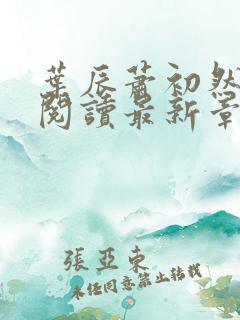 葉辰蕭初然
閱讀最新章
張亞東
未經同意禁止轉載